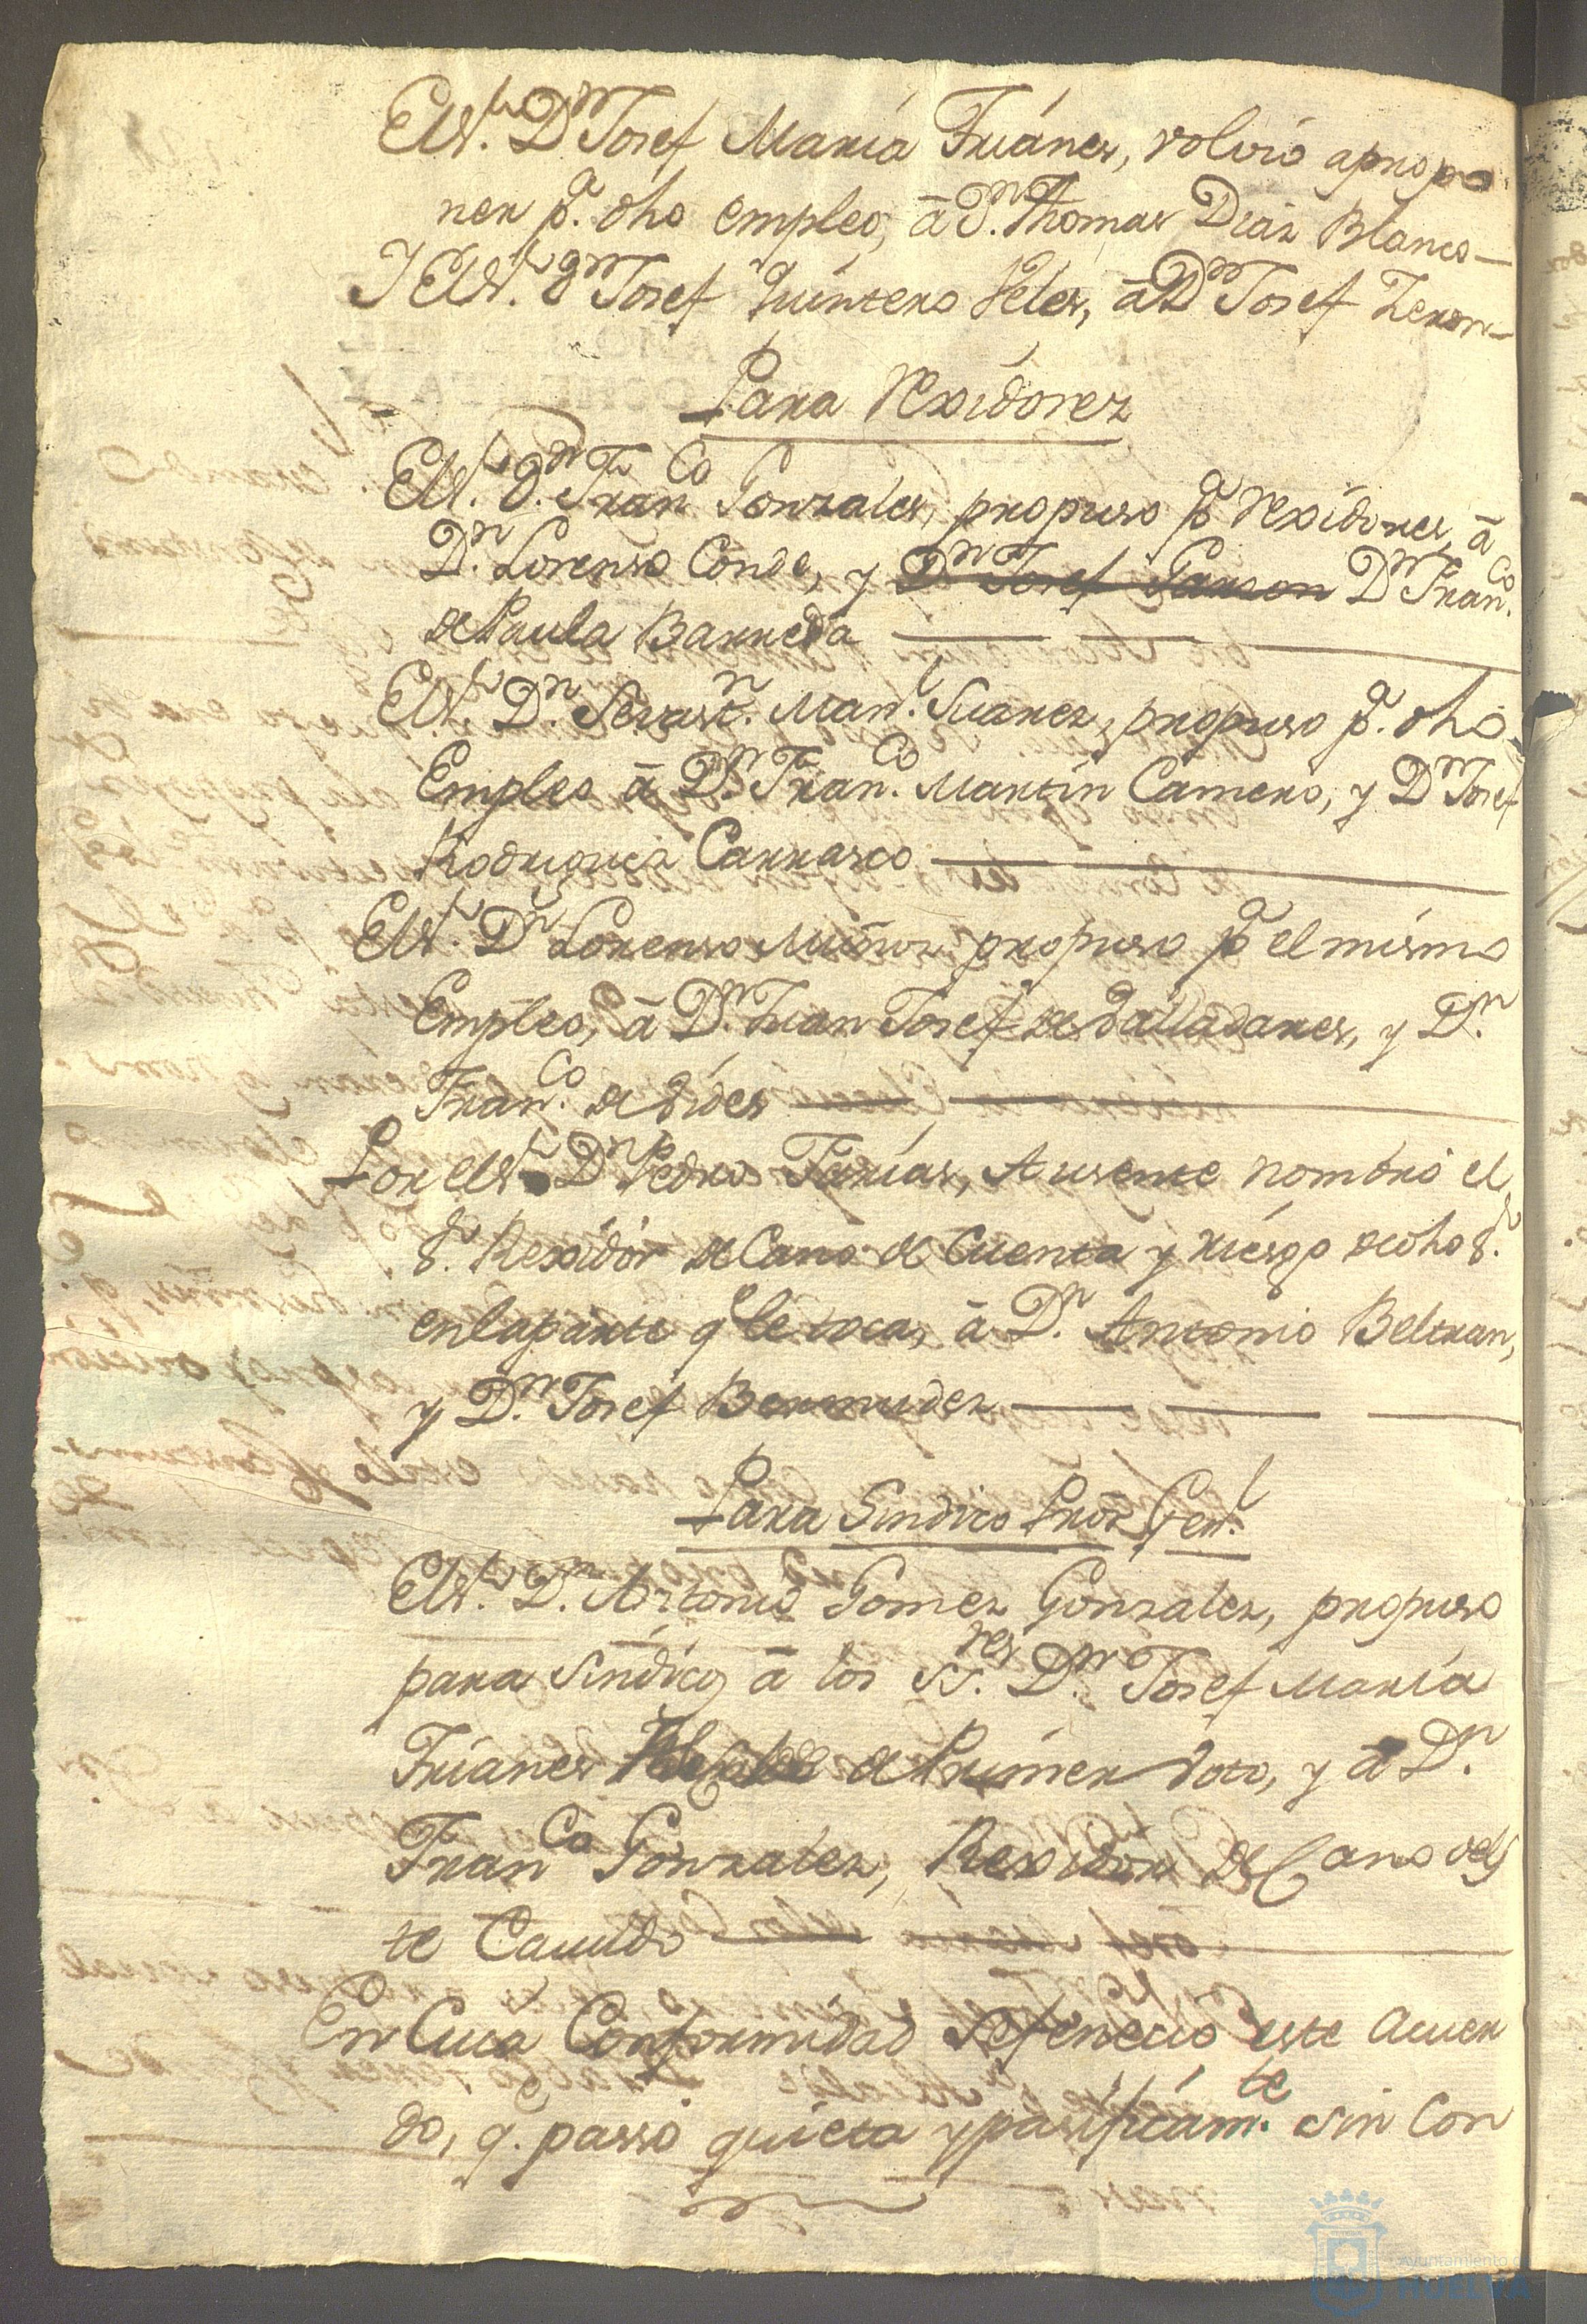 El Sr. Dn Josef Maria Frianes, volvió apropo
ner pa. dho empleo, â Dn. Thomas Diaz Blanco
Y El Sr. Dn Josef Quintero Velez, â Dn Josef Zeron
Para Rexidores
El Sr. Dn. Franco Gonzales, propuso pa Rexidores, â
Dn. Lorenzo Conde, y Dn Josef Garzon Dn Franco.
de Paula Barreda
El Sr. Dn. Sevastn. Manl. Suarez, propuso pa. dho
Empleo â Dn. Franco. Martin Camero, y Dn Josef
Rodriguez Carrasco
El Sr. Dn Lorenzo Muñoz propuso pa el mismo
Empleo, â Dn. Juan Josef de Valladares, y Dn.
Franco. de Vides
Por el Sr. Dn Pedro Farias, Ausente nombró el
Sr. Rexidór deCano de Cuenta y riesgo de dho Sr.
enlaparte qe le toca, â Dn. Antonio Beltran,
y Dn. Josef Bermudez
Para Sindico Pror Genl.
El Sr. Dn. Antonio Gomez Gonzalez, propuso
para Sindico, â los SSres. Dn. Josef Maria
Frianes Alcalde de Primer Voto, y â Dn.
Franco Gonzalez, Rexidor DeCano des
te Cavildo
En Cuia Conformidad sefenecio este Acuer
do, q. passó quieta ypasificamte. sin Con
Ayuntamiento de
HUELVA